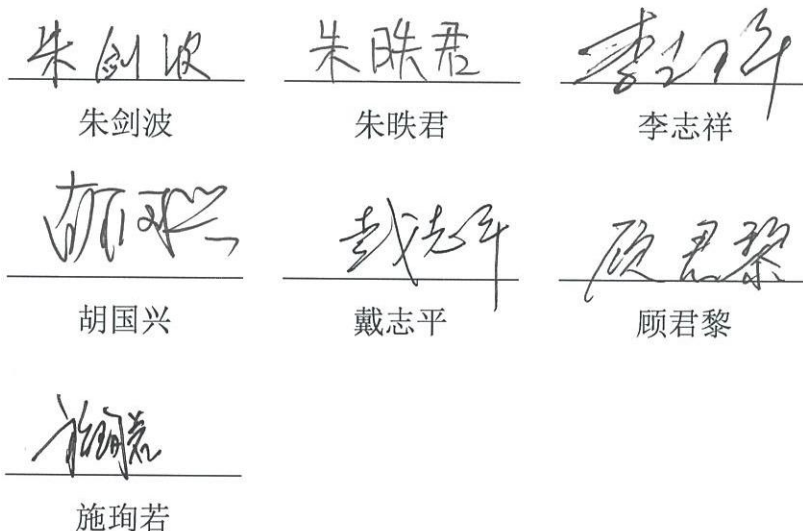 朱剑波 朱昳君 李志祥
朱剑波 朱昳君 李志祥
胡国兴 戴志平 顾君黎
胡国兴 戴志平 顾君黎
施珣若
施珣若